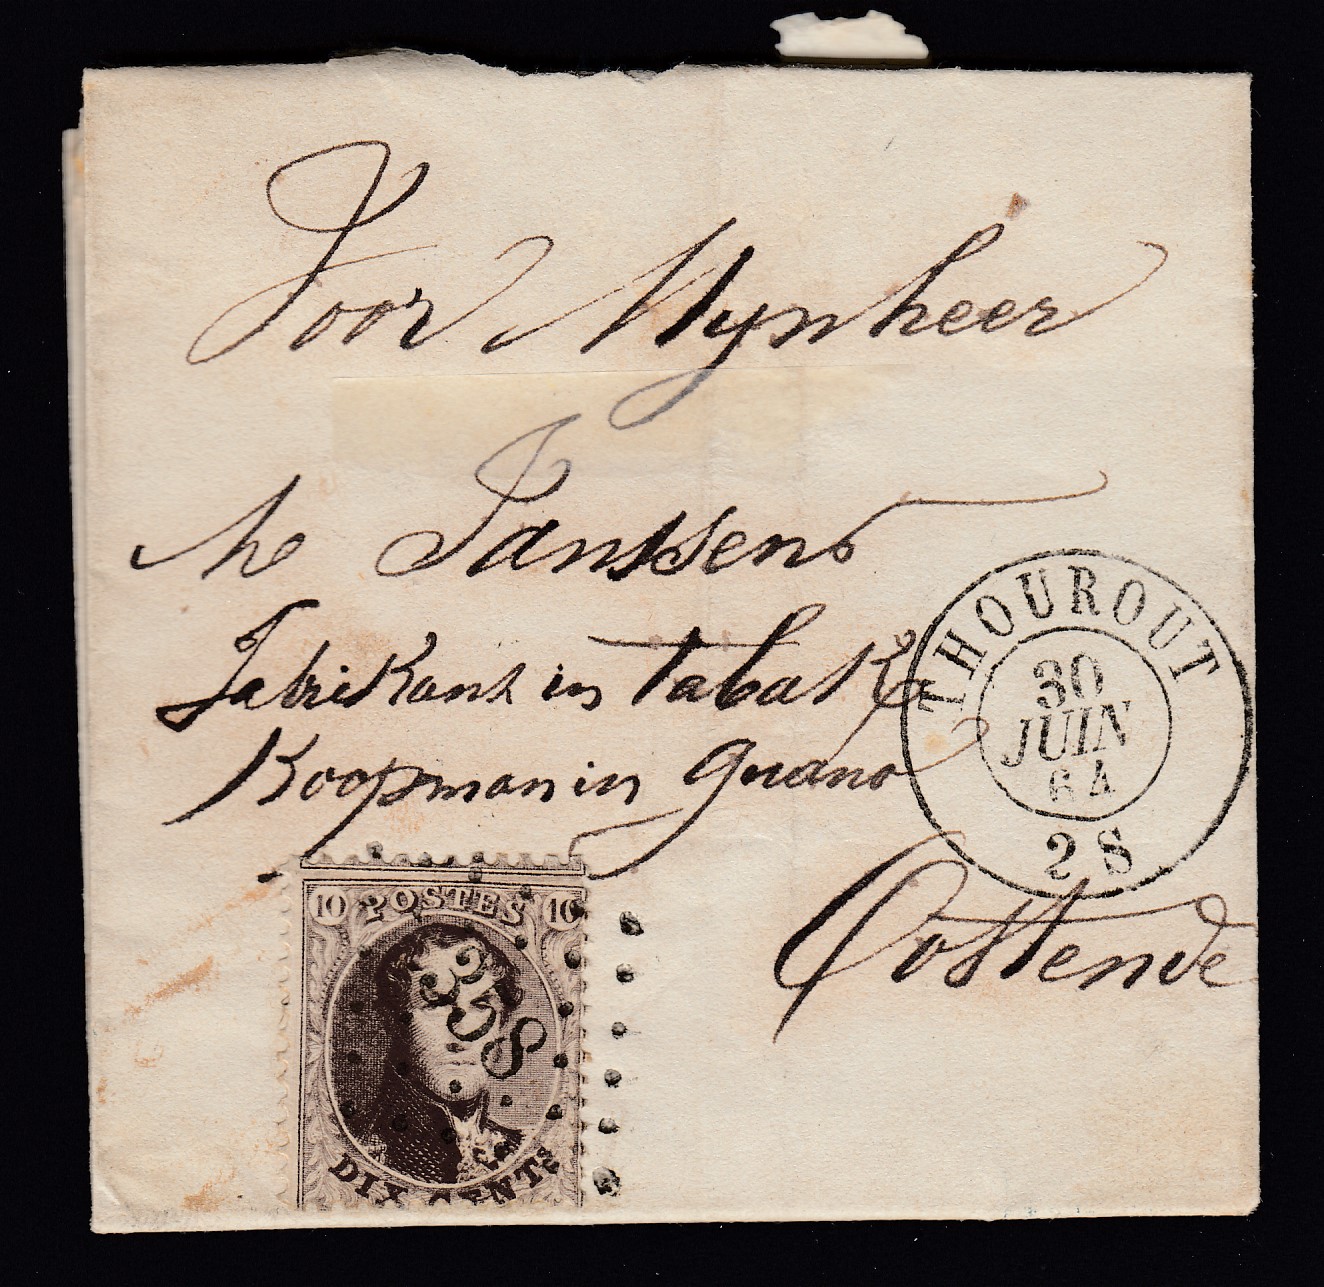 Voor Mynheer
Janssens
Fabrikant in tabak &
Koopman in guano
THOUROUT
30
JUIN
64
2 S
Oostende
10 POSTES 10
358
DIX CENTS